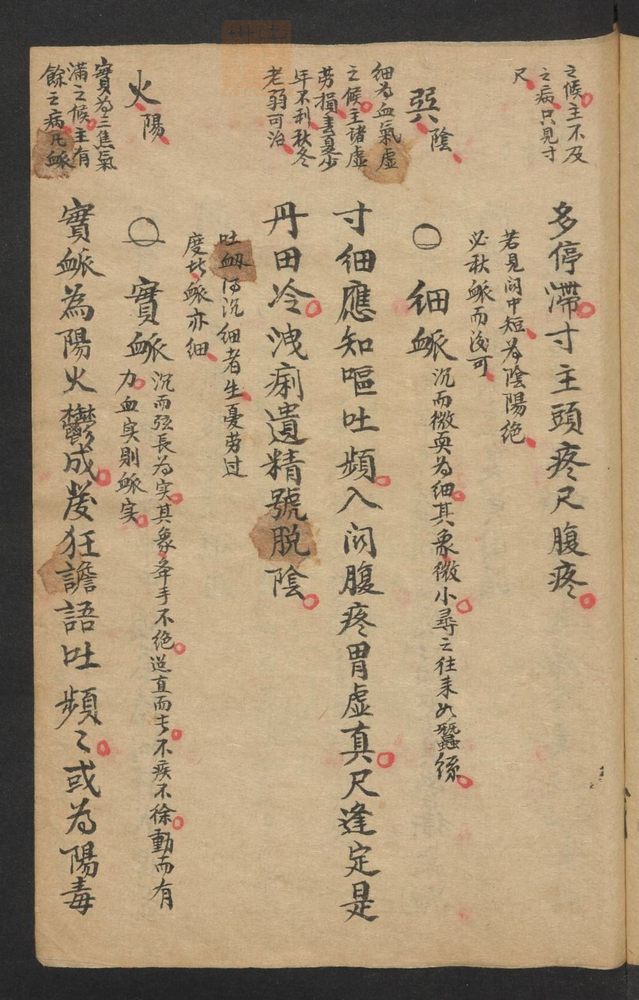 之候主不及
之病只見寸
尺
多停滯寸主頭疼尺腹疼
若見関中短為陰陽絶
必秋脈而後可
巽陰
細為血氣虛
之候主諸虛
勞損春夏少
年不利秋冬
老弱可治
〇細脈
沉而微耎為細其象微小尋之往来如蠶絲
寸細應知嘔吐頻入関腹疼胃虛真尺逢定是
丹田冷洩痢遺精號脱陰
吐衂得沉細者生憂劳过
度者脈亦细
火陽
實為三焦氣
滿之候主有
餘之病凡脈
〇實脈
沉而弦長為实其象牵手不绝迢直而去不疾不徐動而有
力血实則脈实
實脈為陽火鬱成發狂譫語吐頻〻或為陽毒